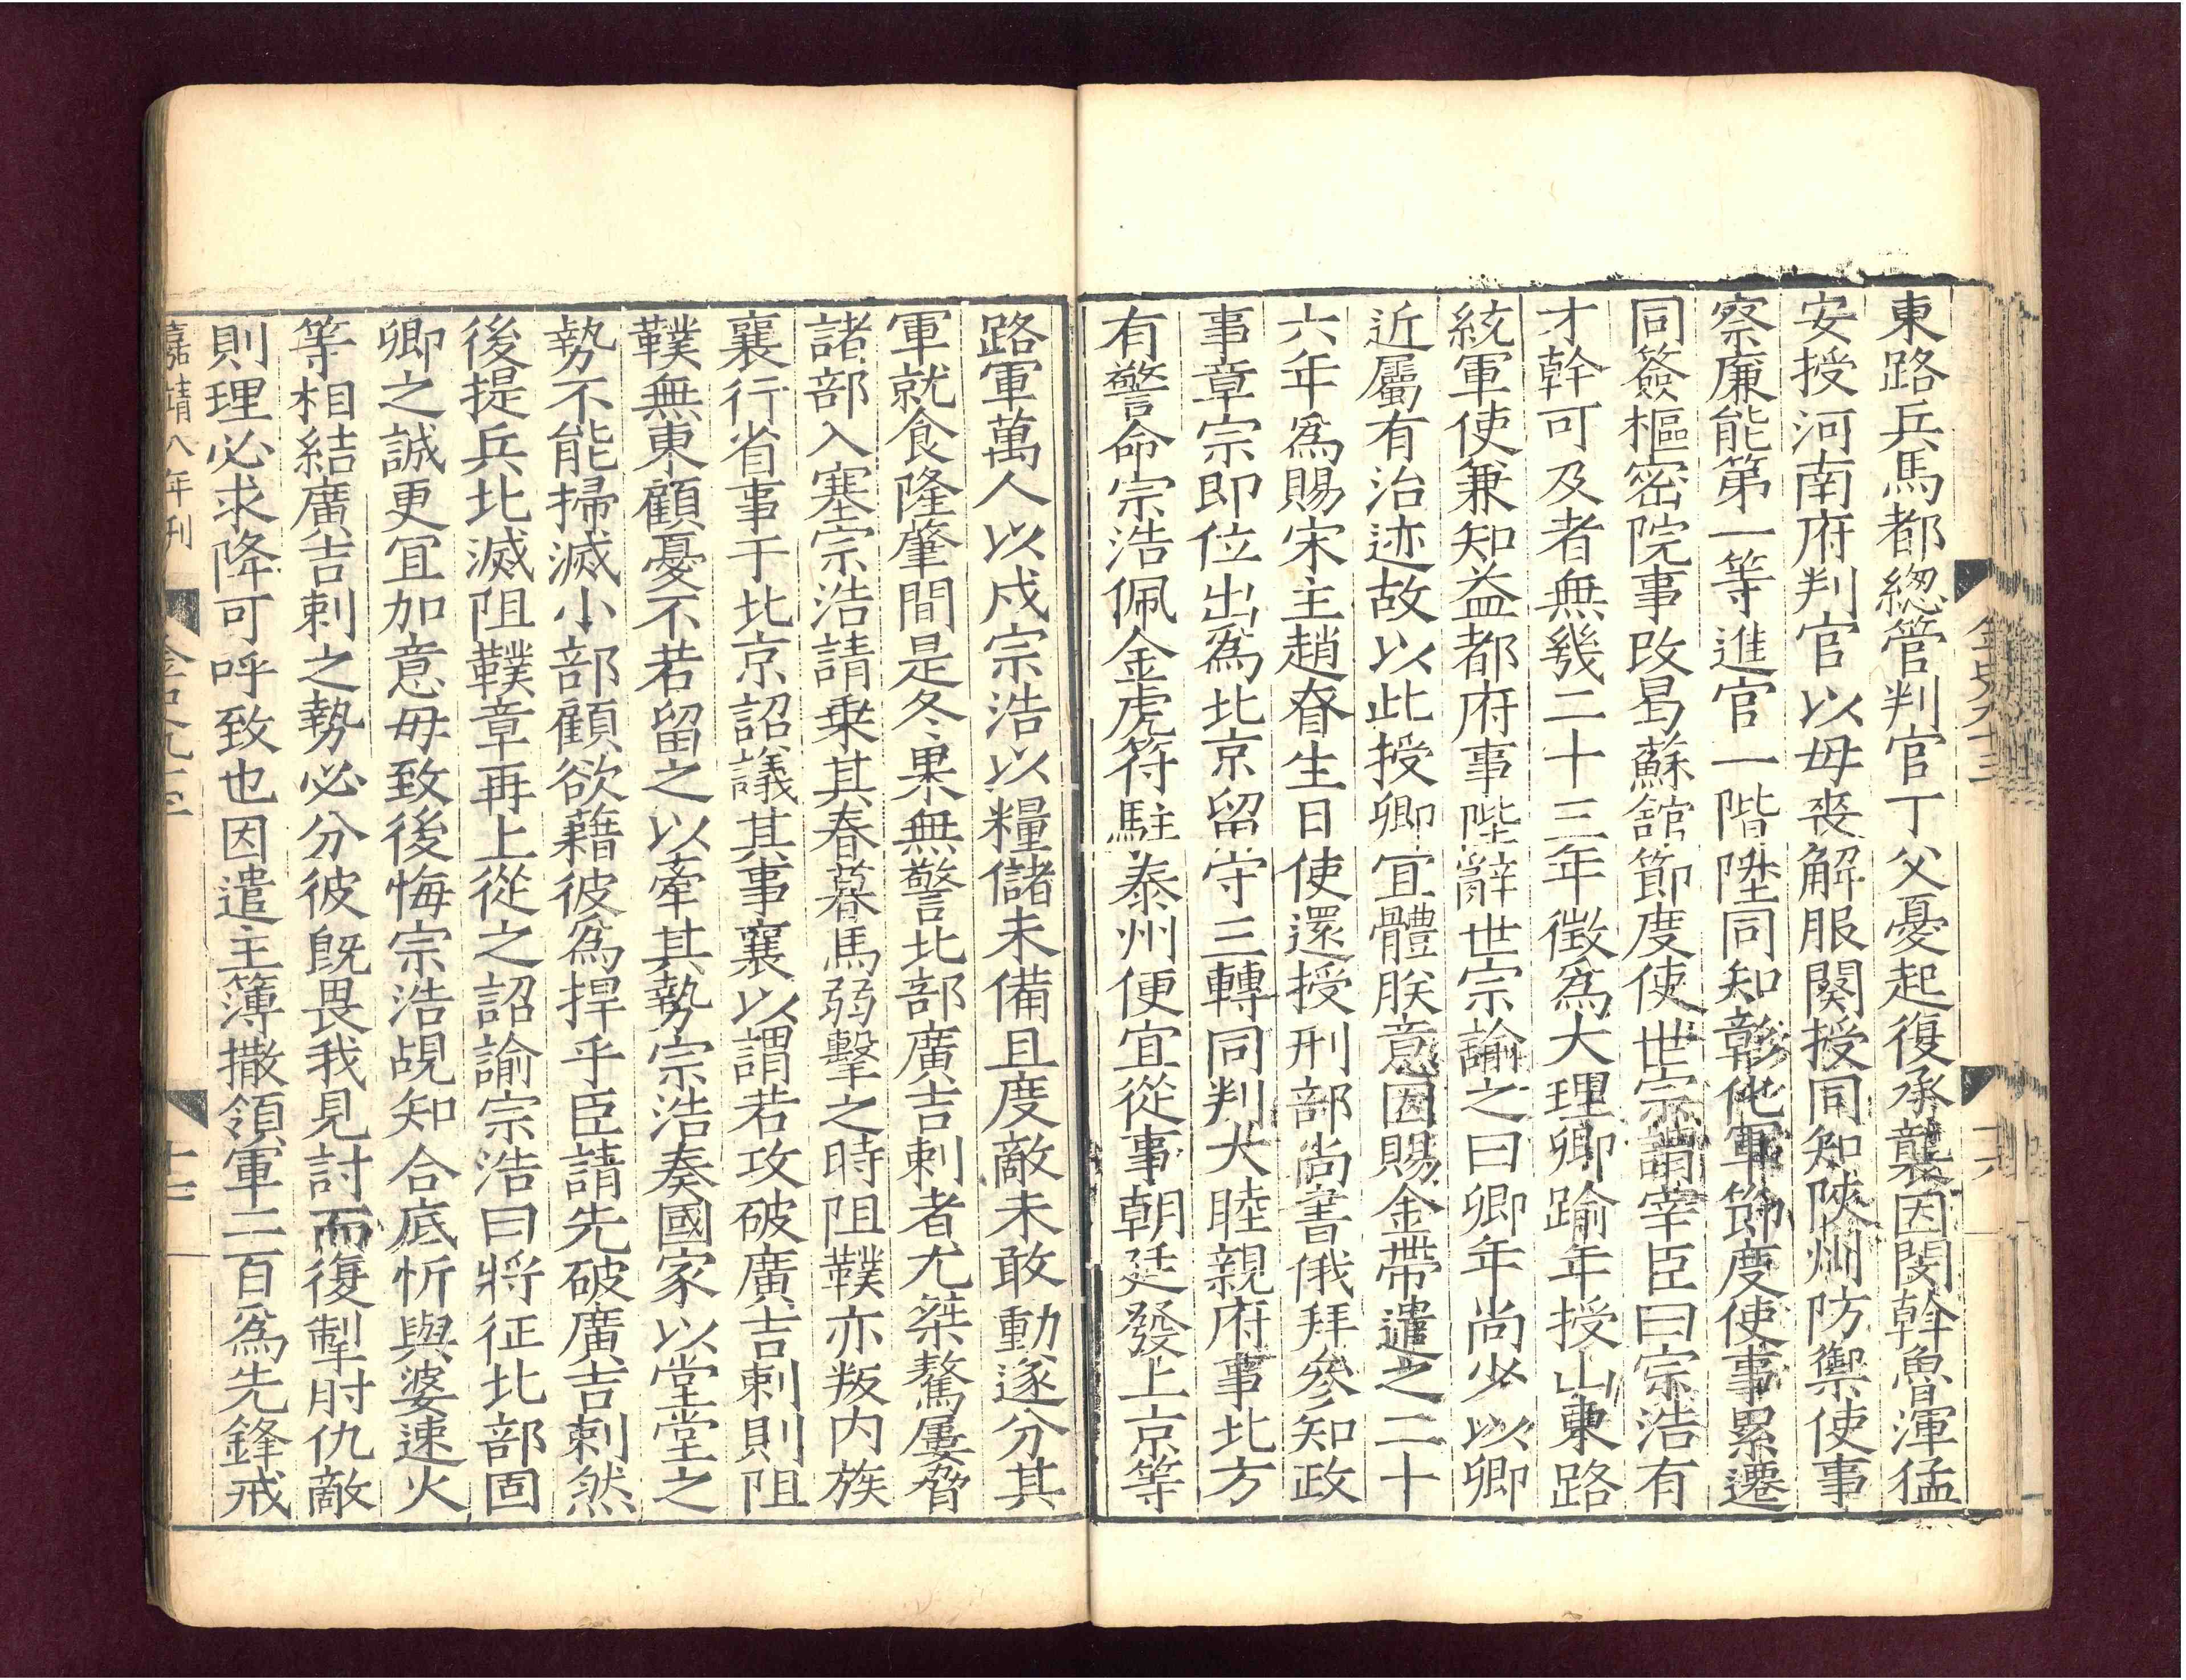 東路兵馬都緫管判官丁父憂起復承襲因閔斡魯渾猛
安授河南府判官以母丧解服闋授同知陝州防禦使事
察廉能第一等進官一階陞同知彰化軍節度使事累遷
同簽樞密院事改曷蘇舘節度使世宗謂宰臣曰宗浩有
才幹可及者無幾二十三年徴爲大理卿踰年授山東路
統軍使兼知益都府事陛辭世宗諭之曰卿年尚少以卿
近屬有治迹故以此授卿宜體朕意因賜金帶遣之二十
六年爲賜宋主趙昚生日使還授刑部尚書俄拜參知政
事章宗即位出爲北京留守三轉同判大睦親府事北方
有警命宗浩佩金虎符駐泰州便宜從事朝廷發上京等
金史九十三
路軍萬人以戍宗浩以糧儲未備且度敵未敢動遂分其
軍就食隆肇間是冬果無警北部廣吉剌者尤桀驁屢脅
諸部入塞宗浩請乗其春暮馬弱擊之時阻䪁亦叛内族
襄行省事于北京詔議其事襄以謂若攻破廣吉剌則阻
䪁無東顧憂不若留之以牽其勢宗浩奏國家以堂堂之
勢不能掃滅小部顧欲藉彼爲捍乎臣請先破廣吉剌然
後提兵北滅阻䪁章再上從之詔諭宗浩曰將征北部固
卿之誠更宜加意毋致後悔宗浩覘知合底忻與婆速火
等相結廣吉剌之勢必分彼旣畏我見討而復掣肘仇敵
則理必求降可呼致也因遣主簿撒領軍二百爲先鋒戒
嘉靖八年刊